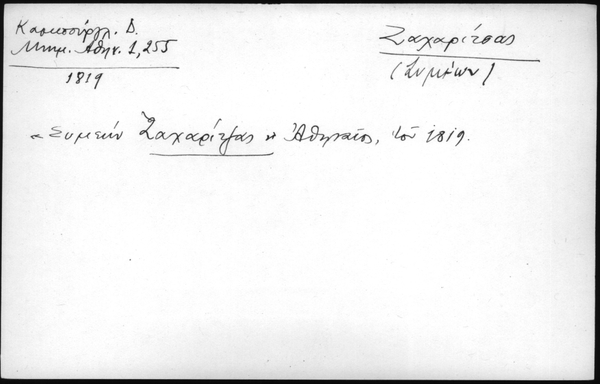 Καμπούργλ. Δ.
Μνημ. Αθην. 1, 255
1819
Ζαχαρίτσας
(Συμεών)
«Συμεών Ζαχαρίτζας» Ἀθηναῖος, τοῦ 1819.